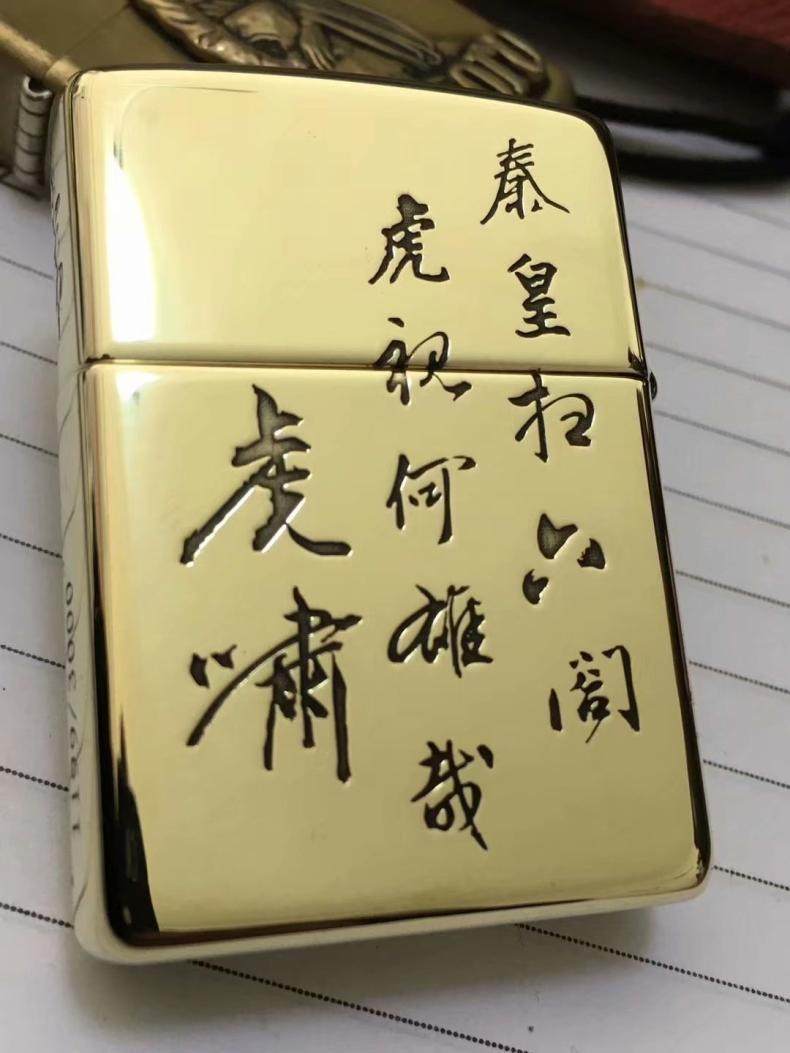 秦皇扫六閤
虎视何雄哉
虎啸
1199/3000